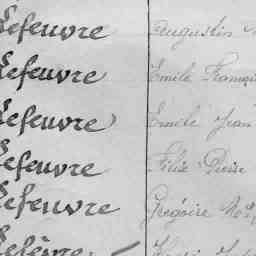 Lefeuvre Augustin
Lefeuvre Emile François
Lefeuvre Emile Jean
Lefeuvre Félix Pierre
Lefeuvre Grégoire
Lefèvre